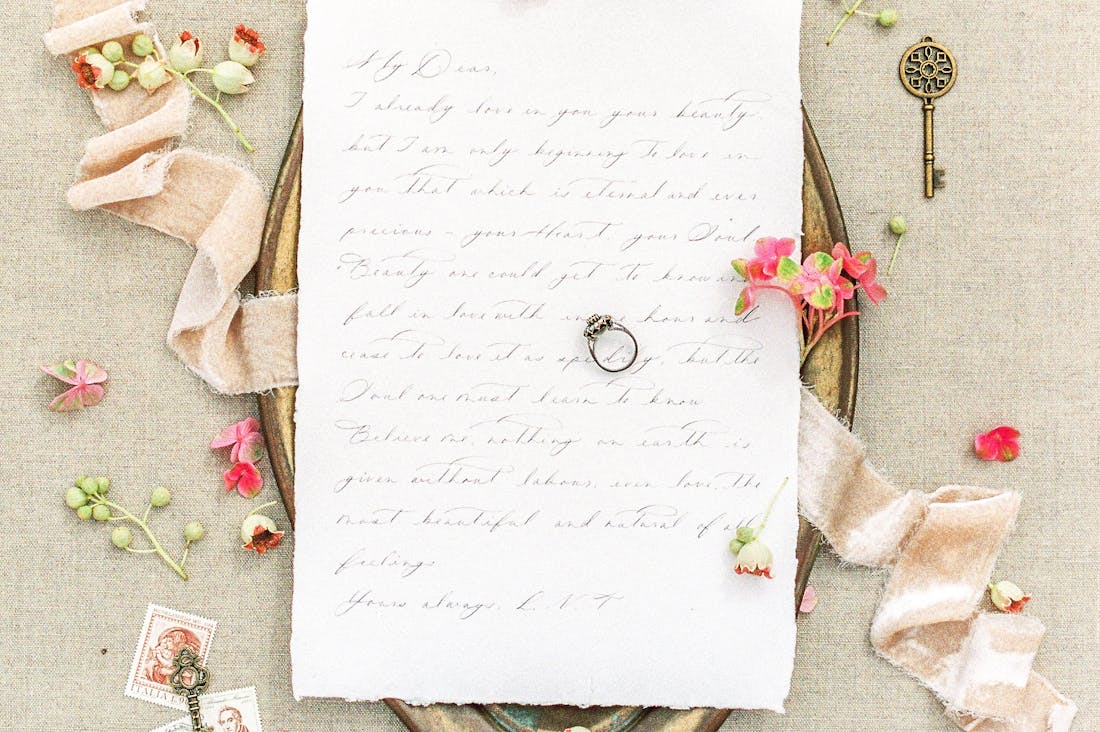 My Dear,
I already love in you your beauty,
but I am only beginning to love in
you that which is eternal and ever
precious – your Heart, your Soul.
Beauty one could get to know and
fall in love with in one hour and
cease to love it as speedily, but the
Soul one must learn to know.
Believe me, nothing on earth is
given without labour, even love, the
most beautiful and natural of all
feelings
Yours always, L. N. T
ITALIA